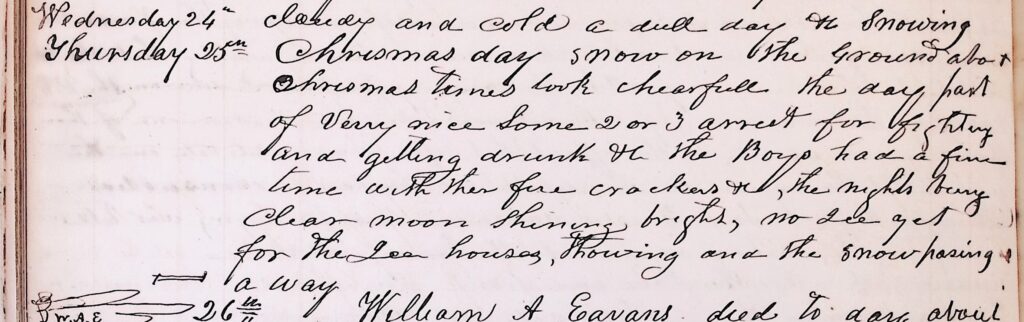 Wednesday 24th cloudy and cold a dull day & Snowing
Thursday 25th Chrismas day snow on the Ground about
Chrismas times look chearfull the day part
of Verry nice Some 2 or 3 arrest for fighting
and getting drunk & the Boys had a fine
time with ther fire crackers &, the nights being
Clear moon Shining bright, no Ice yet
for the Ice houses, thowing and the snow pasing
a way
W.A.E 26th William A Eavans died to day about